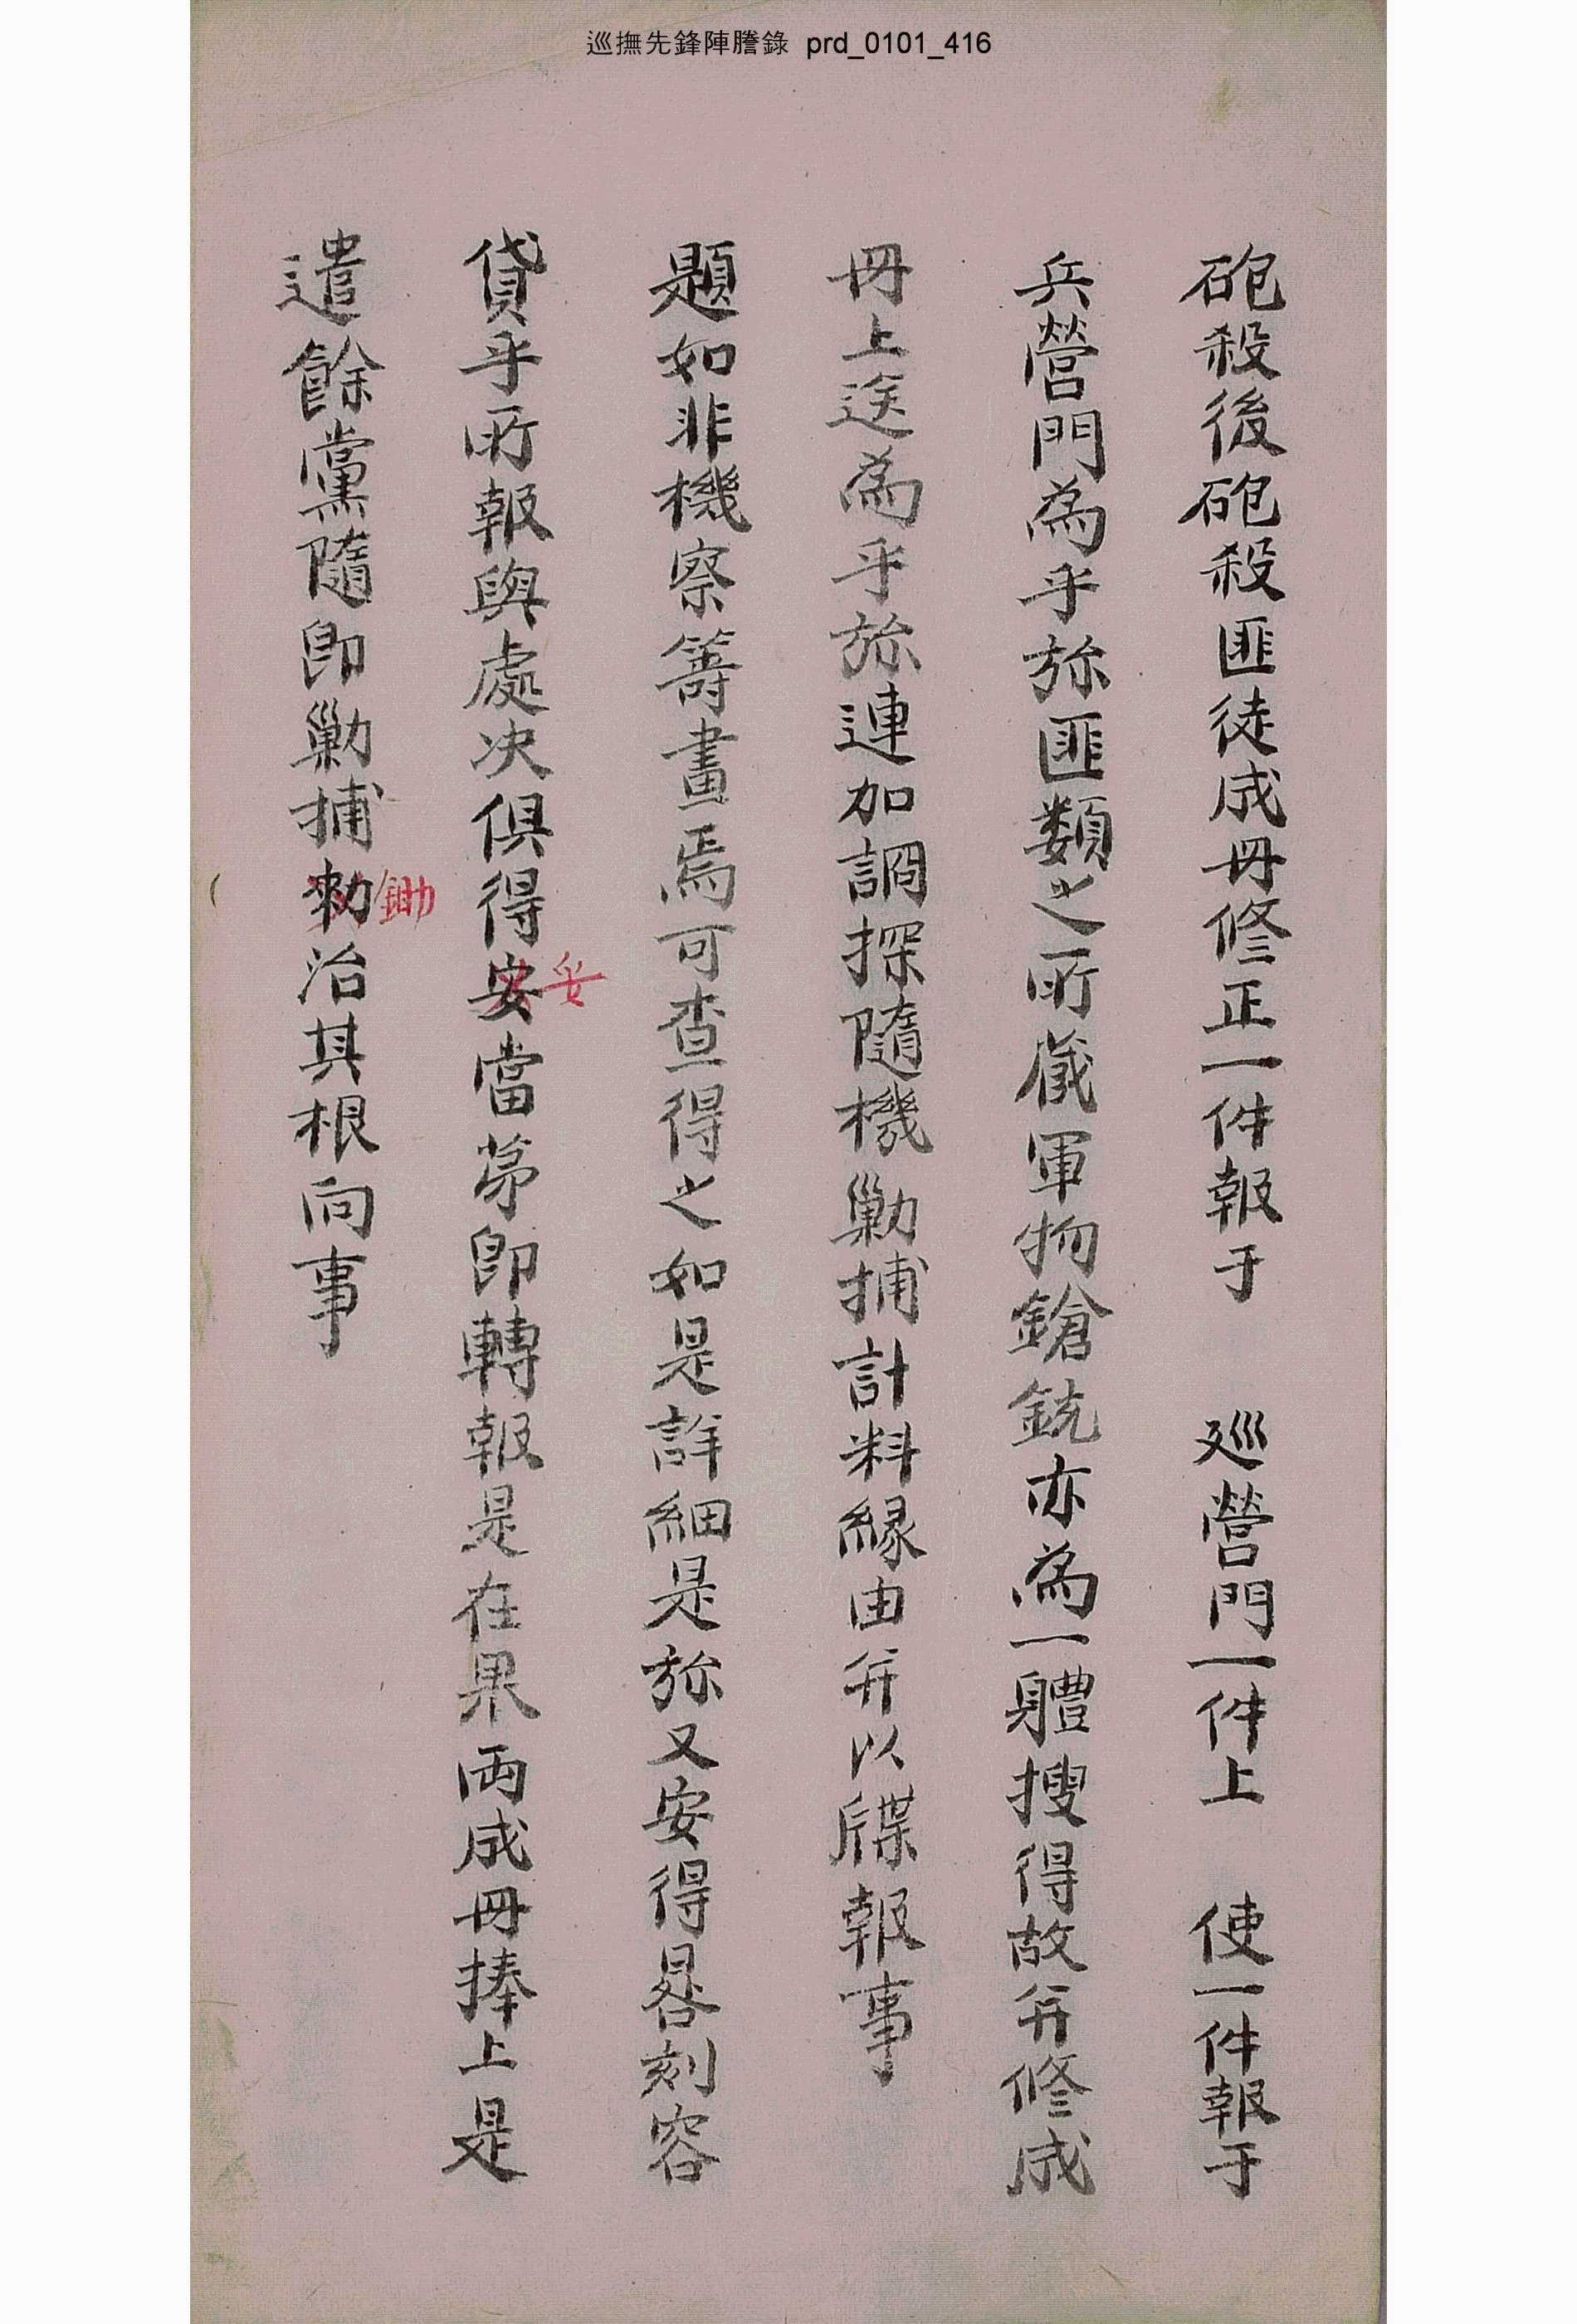 巡撫先鋒陣謄錄 prd_0101_416
砲殺後砲殺匪徒成冊修正一件報于 廵營門一件上 使一件報于
兵營門為乎旀匪類之所藏軍物鎗銃亦為一體搜得故并修成
冊上送為乎旀連加詗探隨機勦捕計料緣由并以牒報事
題如非機察籌畫焉可查得之如是詳細是旀又安得晷刻容
貸乎所報與處决俱得安當苐即轉報是在果両成冊捧上是
妥
遣餘黨隨即勦捕勑治其根向事
鋤